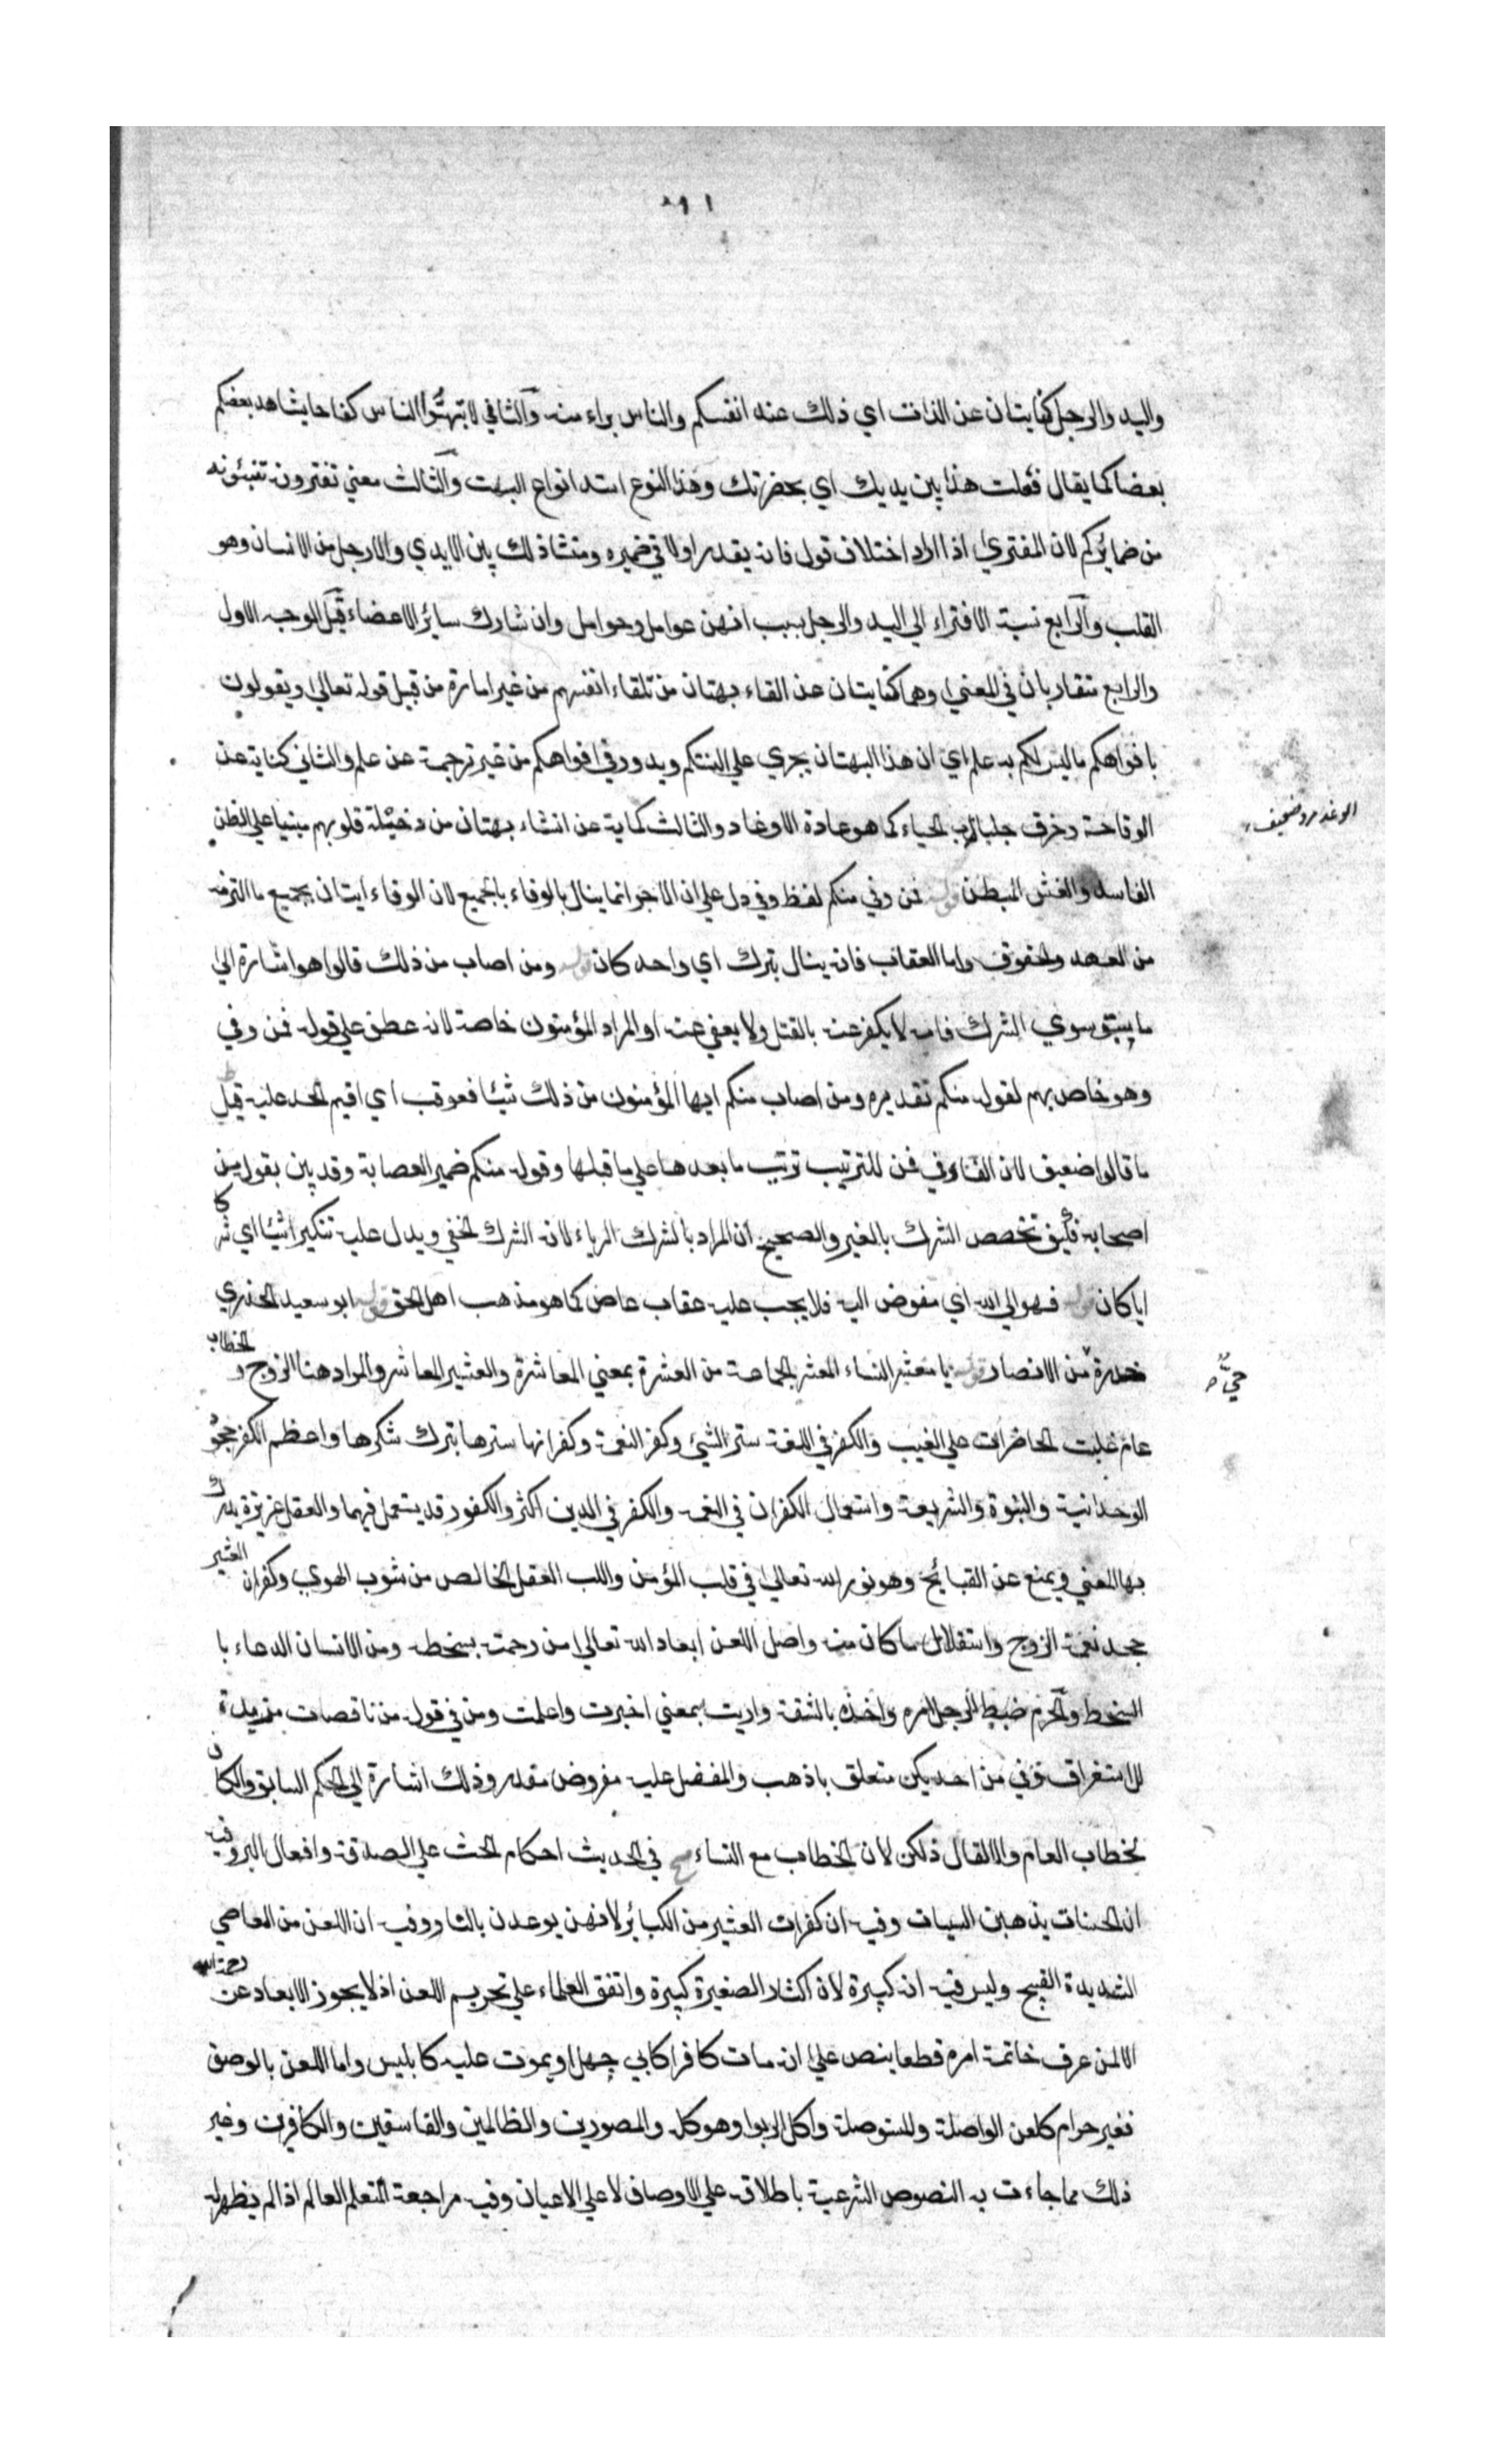 واليد والرجل كنايتان عن الذات اي ذلك عنه انفسكم والناس براء منه والثاني لا تبهتوا الناس كفاحا يشاهد بعضكم
بعضا كما يقال فعلت هذا بين يديك اي بحضرتك وهذا النوع اشد انواع البهت والثالث معني تفترونه تنبئونه
من ضمائركم لان المفتري اذا اراد اختلاف قول فانه يقدر اولا في ضميره ومنشا ذلك بين الايدي والارجل من الانسان وهو
القلب والرابع نسبة الافتراء الي اليد والرجل بسبب انهن عوامل وحوامل وان شارك سائر الاعضاء قيل الوجه الاول
والرابع متقاربان في المعني وهما كنايتان عن القاء بهتان من تلقاء انفسهم من غير امارة من قبيل قوله تعالي ويقولون
بافواهكم ماليس لكم به علم اي ان هذا البهتان يجري علي السنتكم ويدور في افواهكم من غير ترجمة عن علم والثاني كناية عن
الوقاحة وخرق جلباب الحياء كما هو عادة الاوغاد والثالث كماية عن انشاء بهتان من دخيلة قلوبهم مبنيا علي الظن
الوغد مرد ضعيف
الفاسد والغش المبطن قوله فمن وفي منكم لفظ وفي دل علي ان الاجر انما ينال بالوفاء بالجميع لان الوفاء ايتان بجميع ما التزمه
من العهد والحقوق واما العقاب فانه ينال بترك اي واحد كان قوله ومن اصاب من ذلك قالوا هو اشارة الي
ما سوي الشرك فانه لا يكفر عنه بالقتل ولا يعفي عنه او المراد المؤمنون خاصة لانه عطف علي قوله فمن وفي
وهو خاص بهم لقوله منكم تقديره ومن اصاب منكم ايها المؤمنون من ذلك شيئا فعوقب اي اقيم الحد عليه قيل
ما قالوا ضعيف لان الفاء في فمن للترتيب ترتيب ما بعدها علي ما قبلها وقوله منكم ضمير العصابة وقد بين بقوله من
اصحابه فكيف تخصص الشرك بالغير والصحيح ان المراد بالشرك الرياء لانه الشرك الخفي ويدل عليه تنكير شيئا اي شركا
ايا كان قوله فهو الي الله اي مفوض اليه فلا يجب عليه عقاب عاص كما هو مذهب اهل الحق قوله ابو سعيد الخدري
خدرة من الانصار قوله يا معشر النساء المعشر الجماعة من العشرة بمعني المعاشرة والعشير المعاشر والمراد هنا الزوج والخطاب
حي
عام غلبت الحاضرات علي الغيب والكفر في اللغة ستر الشيئ وكفر النعمة وكفرانها سترها بترك شكرها واعظم الكفر جحود
الوحدانية والنبوة والشريعة واستعمال الكفران في النعمة والكفر في الدين اكثر والكفور قد يستعمل فيهما والعقل غريزة يدرك
بها المعني ويمنع عن القبائح وهو نور الله تعالي في قلب المؤمن واللب العقل الخالص من شوب الهوي وكفران العشير
جحد نعمة الزوج واستقلال ما كان منه واصل اللعن ابعاد الله تعالي من رحمته بسخطه ومن الانسان الدعاء با
السخط والحزم ضبط الرجل امره واخذه بالثقة واريت بمعني اخبرت واعلمت ومن في قوله من ناقصات مزيدة
للاستغراق وفي من احديكن متعلق باذهب والمفضل عليه مفروض مقدر وذلك اشارة الي الحكم السابق والكاف
لخطاب العام والا لقال ذلكن لان الخطاب مع النساء مح في الحديث احكام الحث علي الصدقة وافعال البر وفيه
ان الحسنات يذهبن السيات وفيه ان كفران العشير من الكبائر لانهن يوعدن بالنار وفيه ان اللعن من المعاصي
الشديدة القبيح وليس فيه انه كبيرة لان اكثار الصغيرة كبيرة واتفق العلماء علي تحريم اللعن اذ لا يجوز الابعاد عن رحمة الله
الا لمن عرف خاتمة امره قطعا بنص علي انه مات كافرا كابي جهل او يموت عليه كابليس واما اللعن بالوصف
فغير حرام كلعن الواصلة والمستوصلة واكل الربوا وهو كله والمصورين والظالمين والفاسقين والكافرين وغير
ذلك مما جاءت به النصوص الشرعية باطلاقه علي الاوصاف لا علي الاعيان وفيه مراجعة المتعلم العالم اذا لم يظهر له